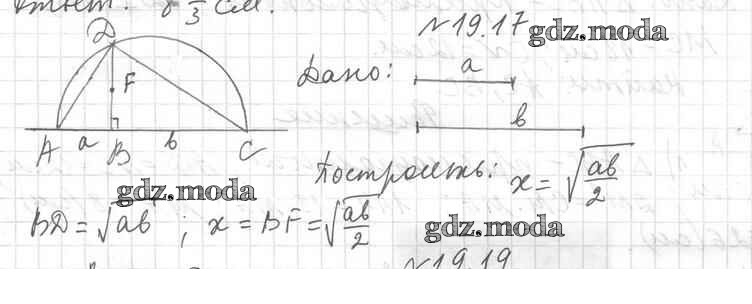 Ответ: 8 1/3 см.
№ 19.17 gdz.moda
D
Дано: a
F
b
A a B b C
Построить: x = √(ab/2)
gdz.moda
BD = √ab ; x = BF = √(ab/2)
gdz.moda
№ 19.19